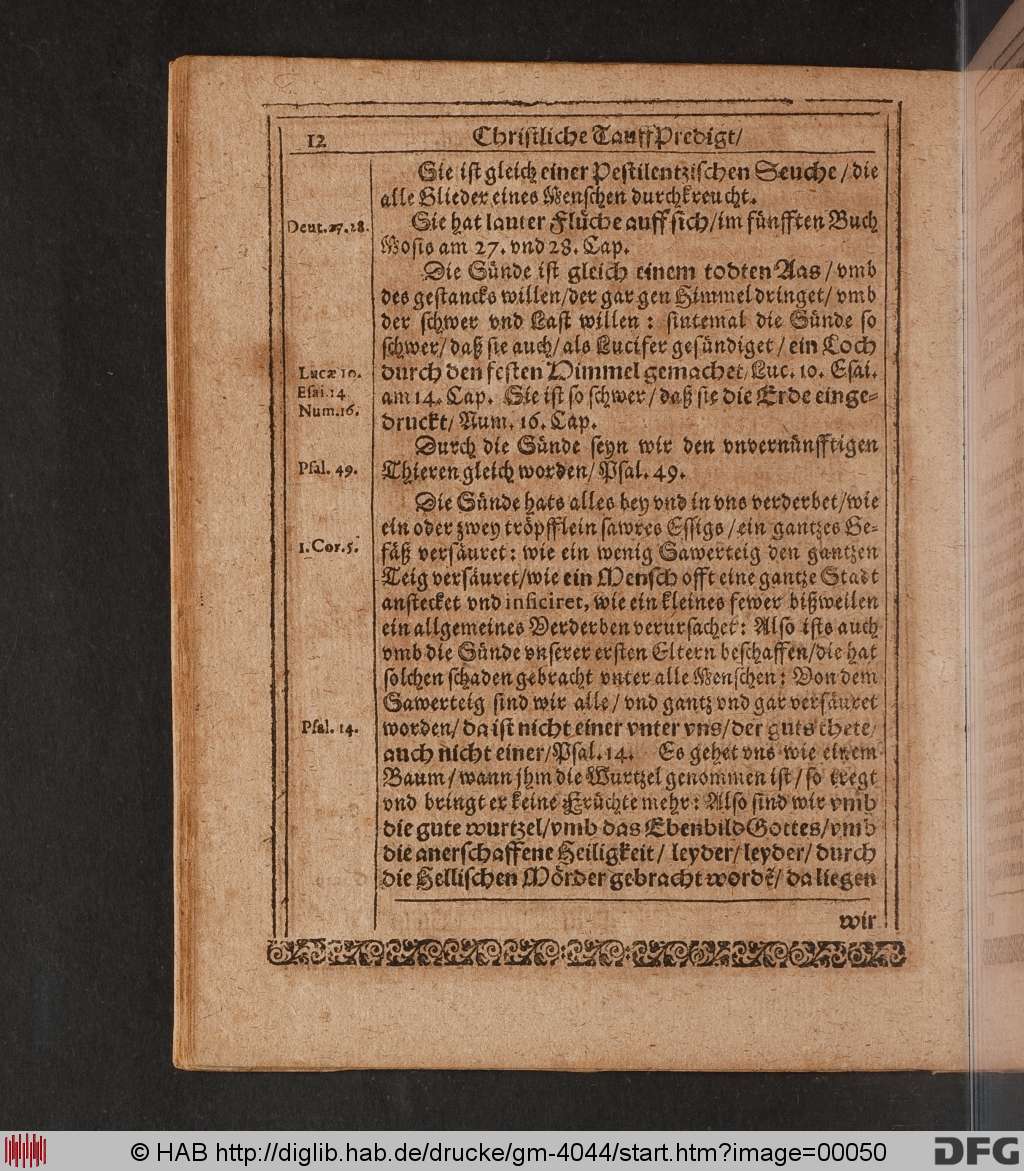 12
Christliche TauffPredigt/
Sie ist gleich einer Pestilentzischen Seuche/die
alle Glieder eines Menschen durchkreucht.
Deut.27.28.
Sie hat lauter Flüche auff sich/im fünfften Buch
Mosis am 27. vnd 28. Cap.
Die Sünde ist gleich einem todten Aas/vmb
des gestancks willen/der gar gen Himmel dringet/vmb
der schwer vnd Last willen: sintemal die Sünde so
schwer/daß sie auch/als Lucifer gesündiget/ein Loch
Lucæ 10.
durch den festen Himmel gemachet/Luc. 10. Esai.
Esai.14
am 14. Cap. Sie ist so schwer/daß sie die Erde einge-
Num.16.
druckt/Num. 16. Cap.
Durch die Sünde seyn wir den vnvernünfftigen
Psal. 49.
Thieren gleich worden/Psal. 49.
Die Sünde hats alles bey vnd in vns verderbet/wie
ein oder zwey tröpfflein sawres Essigs/ein gantzes Ge-
1.Cor.5.
fäß versäuret: wie ein wenig Sawerteig den gantzen
Teig versäuret/wie ein Mensch offt eine gantze Stadt
anstecket vnd inficiret, wie ein kleines fewer bißweilen
ein allgemeines Verderben verursachet: Also ists auch
vmb die Sünde vnserer ersten Eltern beschaffen/die hat
solchen schaden gebracht vnter alle Menschen: Von dem
Sawerteig sind wir alle/vnd gantz vnd gar versäuret
Psal. 14.
worden/da ist nicht einer vnter vns/der guts thete/
auch nicht einer/Psal. 14. Es gehet vns wie einem
Baum/wann jhm die Wurtzel genommen ist/so tregt
vnd bringt er keine Früchte mehr: Also sind wir vmb
die gute wurtzel/vmb das Ebenbild Gottes/vmb
die anerschaffene Heiligkeit/leyder/leyder/durch
die Hellischen Mörder gebracht wordẽ/da liegen
wir
© HAB http://diglib.hab.de/drucke/gm-4044/start.htm?image=00050
DFG